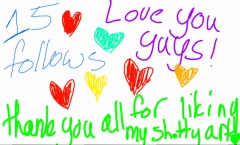 15 follows
Love you guys!
thank you all for liking
my shotty art